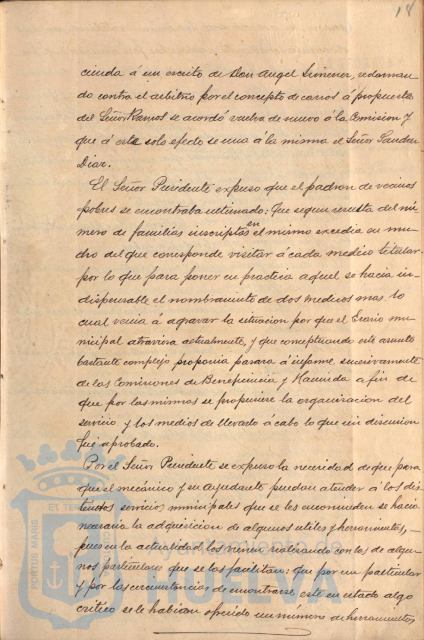 18
cienda á un escrito de Don Angel Jimenez, reclaman-
do contra el arbitrio por el concepto de carros á propuesta
del Señor Ramos se acordó vuelva de nuevo á la Comision y
que á este solo efecto se una á la misma el Señor Sanchez
Diaz.
El Señor Presidente expuso que el padron de vecinos
pobres se encontraba ultimado: Que segun resulta del nú-
mero de familias inscriptas en el mismo excedia en mu-
cho del que corresponde visitar á cada medico titular.
por lo que para poner en practica aquel se hacia in-
dispensable el nombramiento de dos medicos mas. lo
cual venia á agravar la situacion por que el Erario mu-
nicipal atraviesa actualmente, y que conceptuando este asunto
bastante complejo proponia pasara á informe nuevamente
de las Comisiones de Beneficencia y Hacienda a fin de
que por las mismas se propusiere la organizacion del
servicio y los medios de llevarlo á cabo lo que sin discusion
fue aprobado.
Por el Señor Presidente se expuso la necesidad de que para
que el mecánico y su Ayudante puedan atender á los dis-
tintos servicios municipales que se les encomienden se hacia
necesaria la adquisicion de algunos utiles y herramientas,
pues en la actualidad los vienen realizando con los de algu-
nos particulares que se los facilitan: que por un particular
y por las circunstancias de encontrarse este en estado algo
critico se le habian ofrecido un número de herramientas
PORTUS MARIS
ET TERRAE
CUSTODIA
Ayuntamiento de
HUELVA